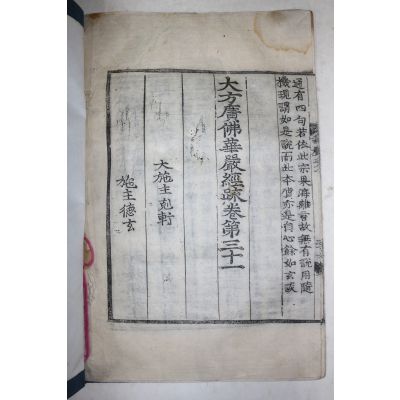 道有四句若依此宗果海離言故無有說用隨
機現謂如是說而此本質亦是自心餘如玄談
大方廣佛華嚴經䟽卷第三十一
大施主尅軒
施主德玄